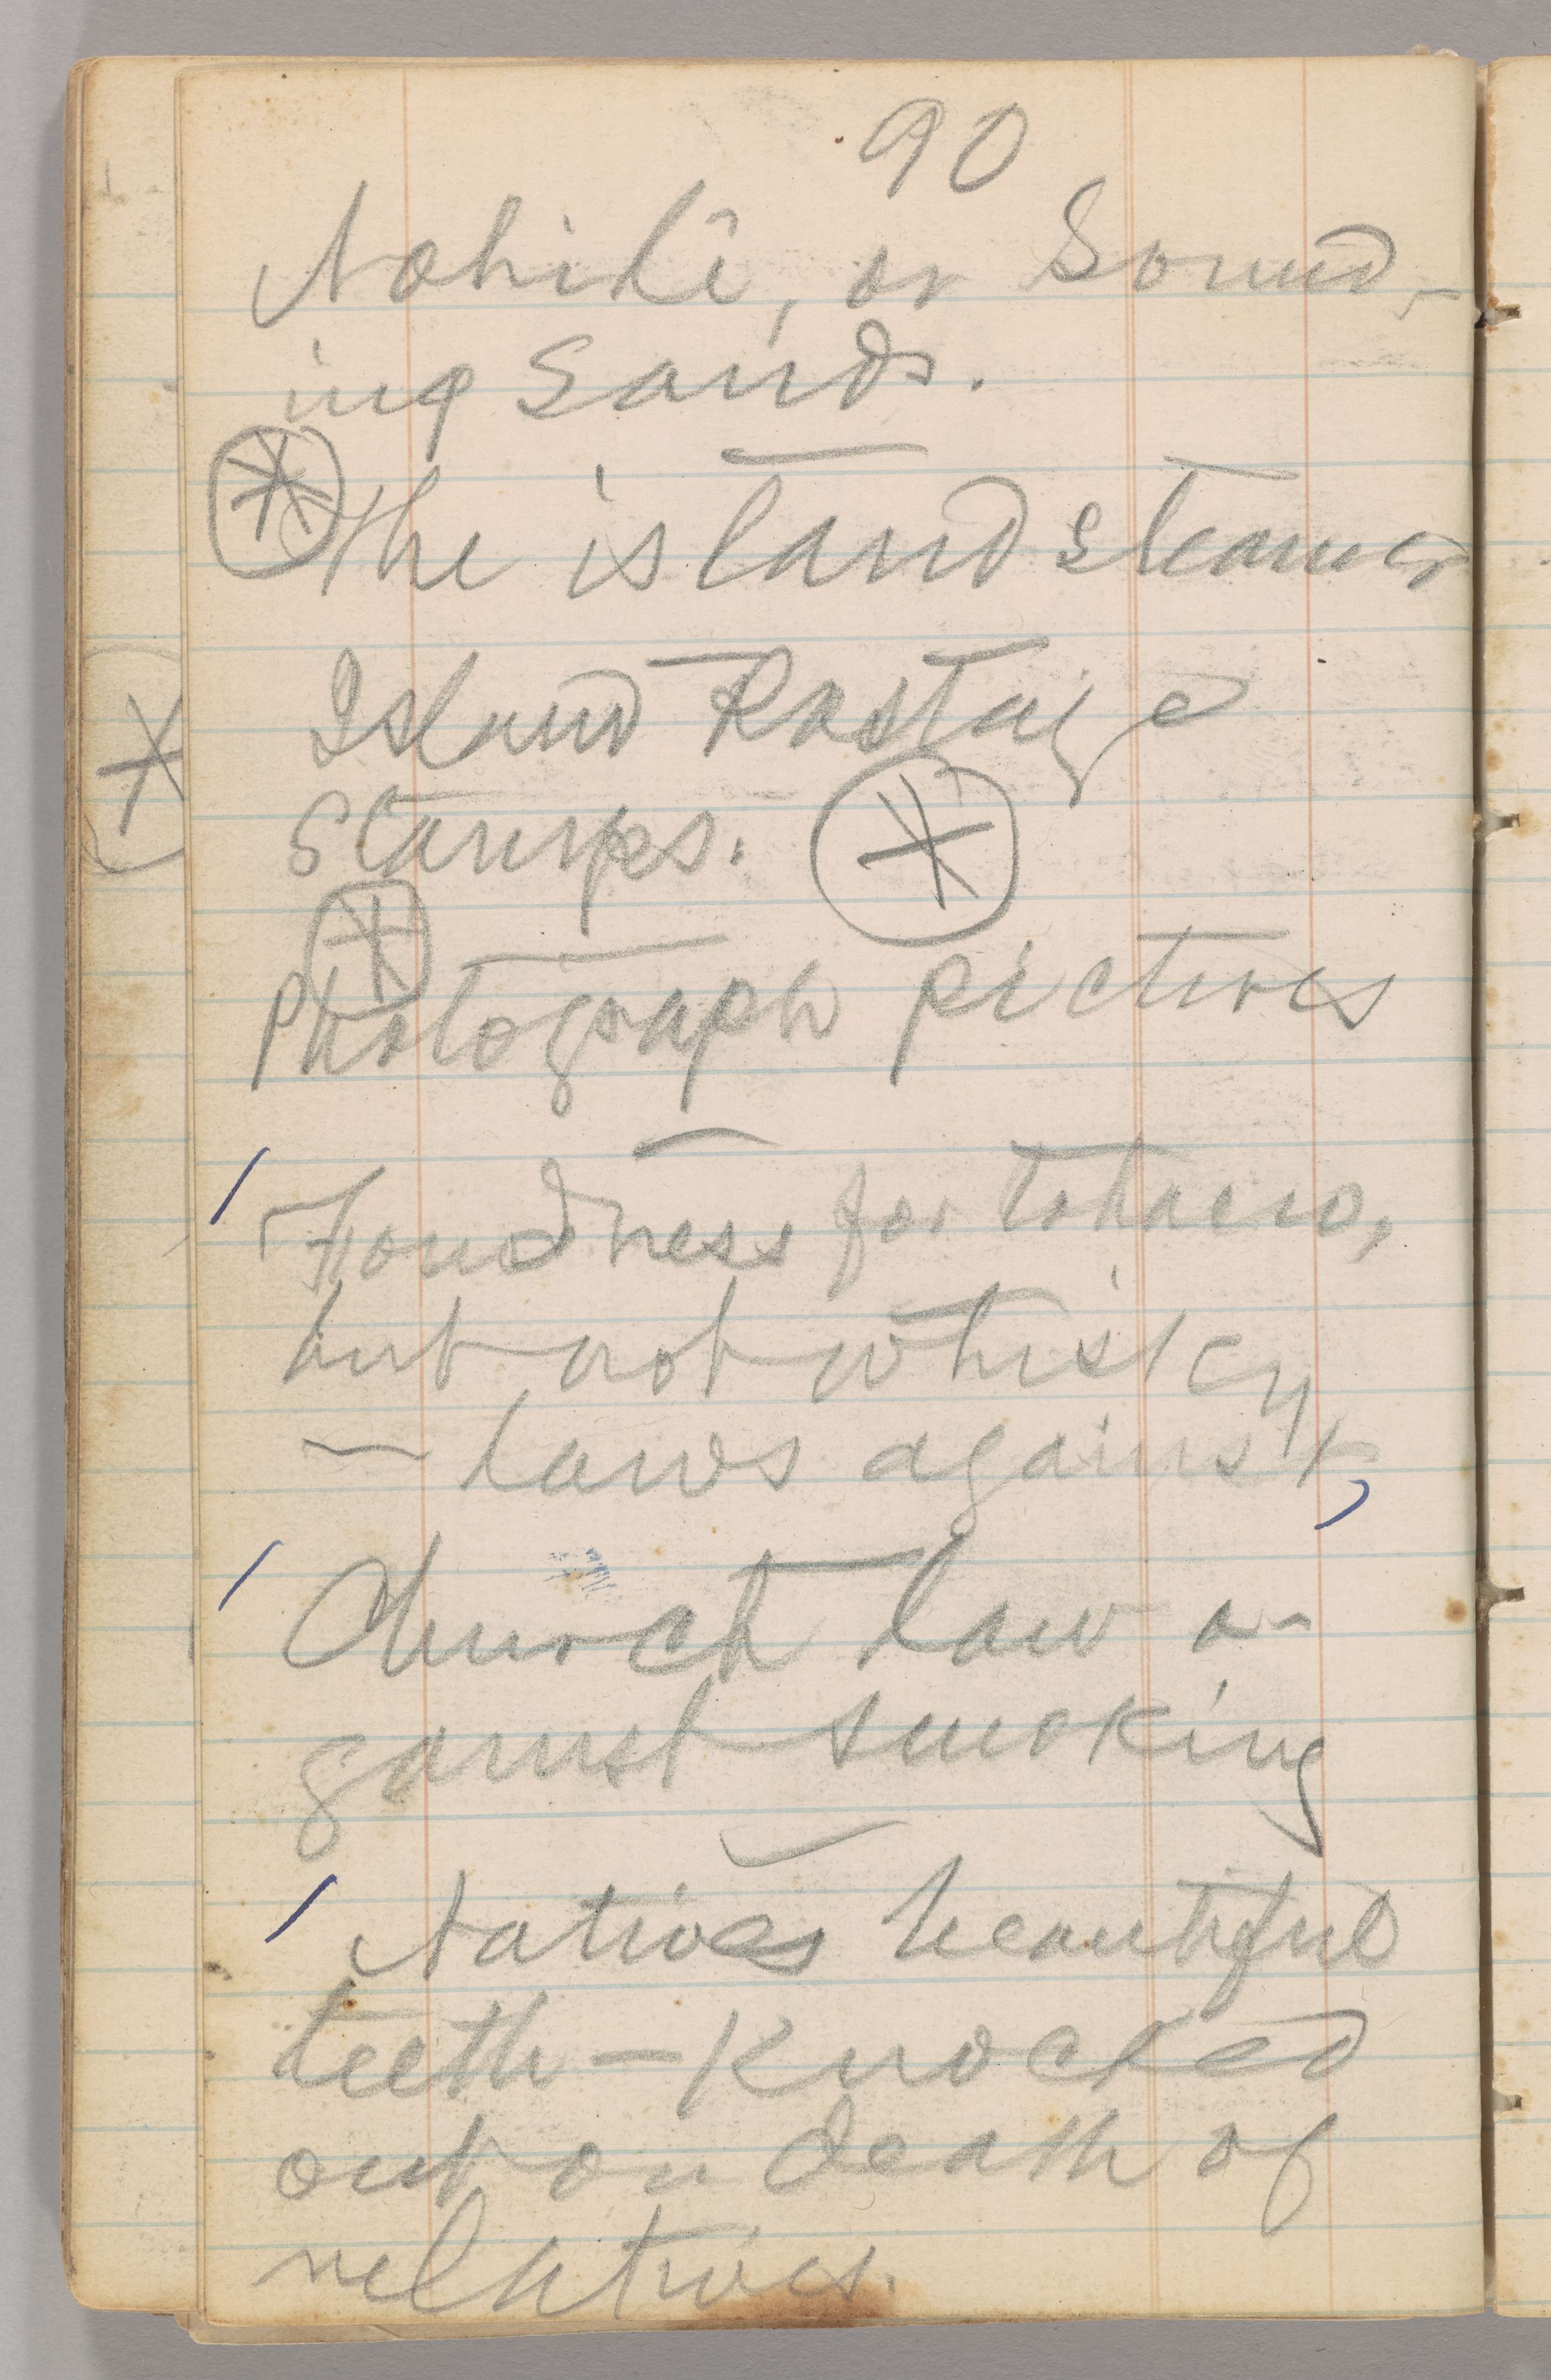 90
Nohili, or Sound-
ing Sands.
The island steamer
Island Postage
Stamps.
Photograph pictures
Fondness for tobacco,
but not whisky
— laws against,
Church law a-
gainst smoking
Natives beautiful
teeth — Knocked
out on death of
relatives.